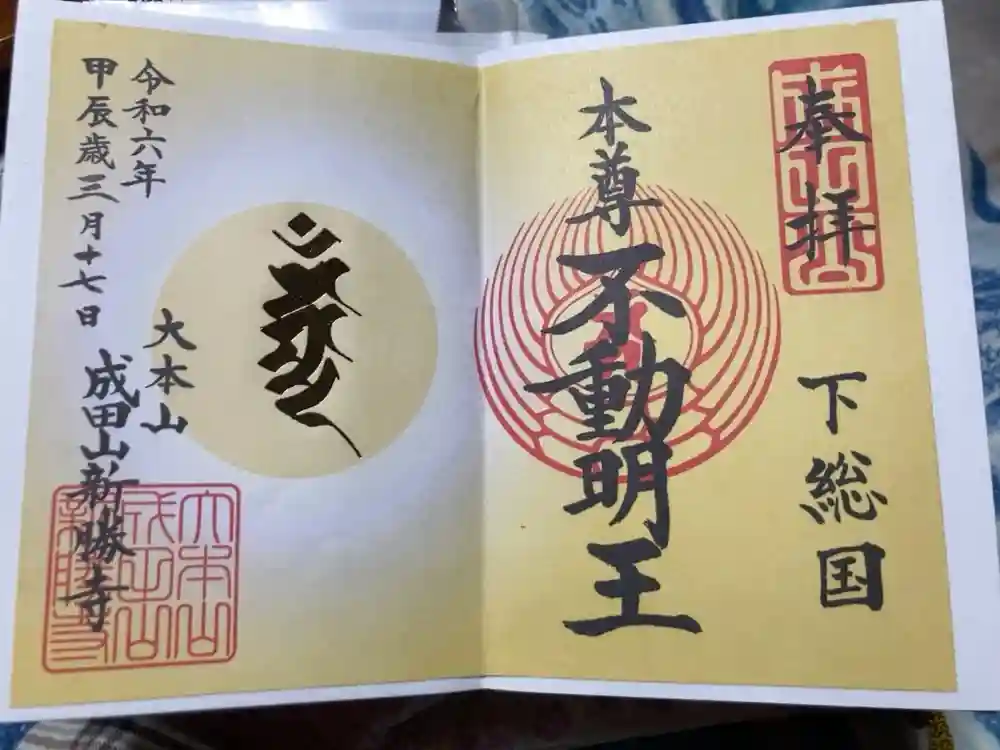 奉拝
下総国
本尊不動明王
令和六年
甲辰歳三月十七日
大本山
成田山新勝寺
大本山
成田山
新勝寺